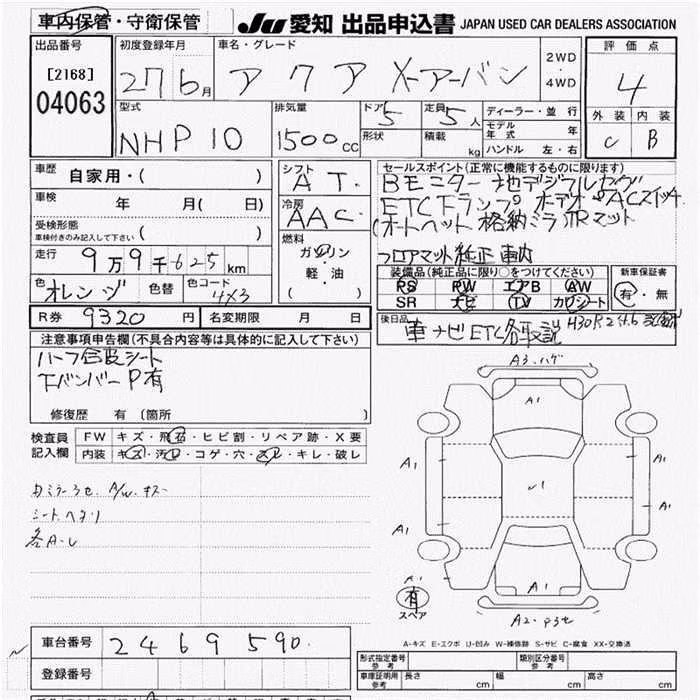 車内保管・守衛保管 JU 愛知 出品申込書 JAPAN USED CAR DEALERS ASSOCIATION
出品番号 初度登録年月 車名・グレード 評価点
[2168] 27 6月 アクア X-アーバン 2WD・4WD 4
04063
型式 排気量 ドア 5 定員 5人 ディーラー・並行 外装 内装
NHP10 1500cc 形状 積載 kg モデル年式 年 C B
ハンドル 左・右
車歴 自家用・( ) シフト AT. セールスポイント(正常に機能するものに限ります)
車検 年 月( 日) 冷房 AAC Bモニター 地デジフルセグ
受検形態 ( ) ETC
車検付きのみ記入して下さい オートヘット 格納ミラー マット
走行 9万9千625km 燃料 ガソリン・軽・油 ( ) フロアマット純正 車内
装備品(純正品に限り○をつけてください) 新車保証書
色 オレンジ 色替 色コード 4X3 PS PW エアB AW 有・無
SR ナビ TV カワシート
R券 9320円 名変期限 月 日 後日品 車 ナビ ETC 各取説 H30 R2
注意事項申告欄(不具合内容等は具体的に記入して下さい)
ハーフ合皮シート
下バンパーP有
修復歴 有 (箇所
検査員記入欄 FW キズ・飛石・ヒビ割・リペア跡・X要
内装 キズ・汚レ・コゲ・穴・スレ・キレ・破レ
A3.ハゲ
A1
A1 A1
✓1
内ミラーうせ. A/W.キズ
シート.ヘタリ A1 A1
各A-U
A1 A1
有 スペア
A2.Pうせ
A-キズ E-エクボ U-凹み W-補修跡 S-サビ C-腐食 XX-交換済
車台番号 2469590.
登録番号
形式指定番号 参考 類別区分番号 参考
車庫証明用 参考 長さ cm 幅 cm 高さ cm